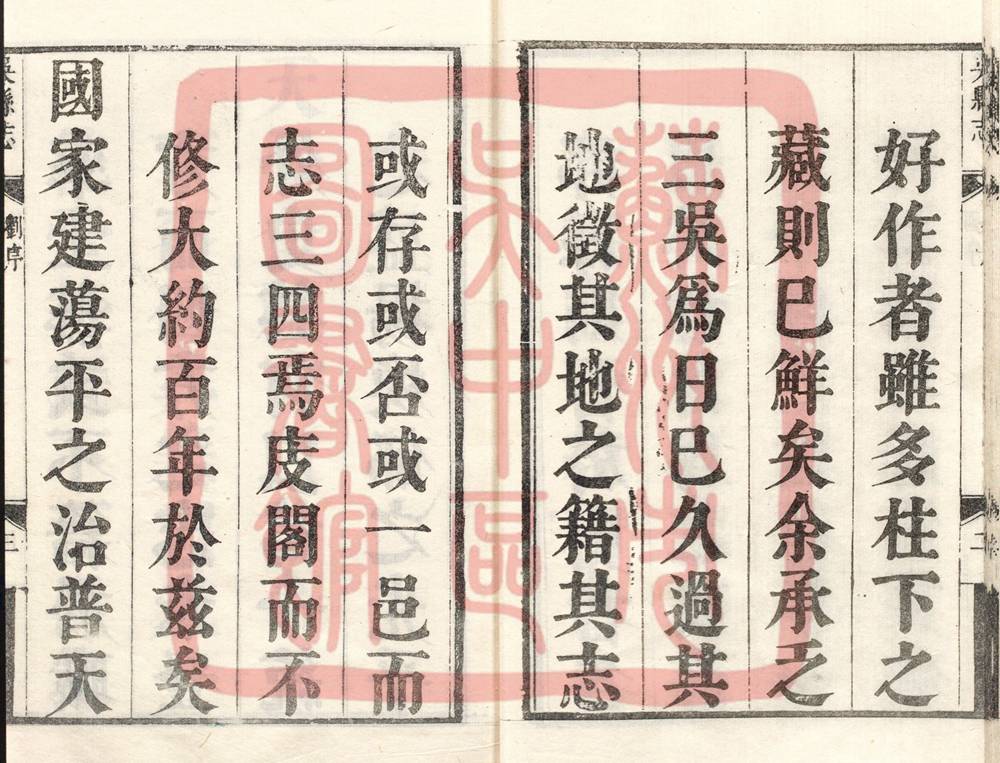 好作者雖多柱下之
藏則已鮮矣余承乏
三吳爲日已久過其
地徵其地之籍其志
或存或否或一邑而
志三四焉庋閣而不
修大約百年於茲矣
國家建蕩平之治普天
吳縣志
劉序
三
蘇州市
吳中區
圖書館